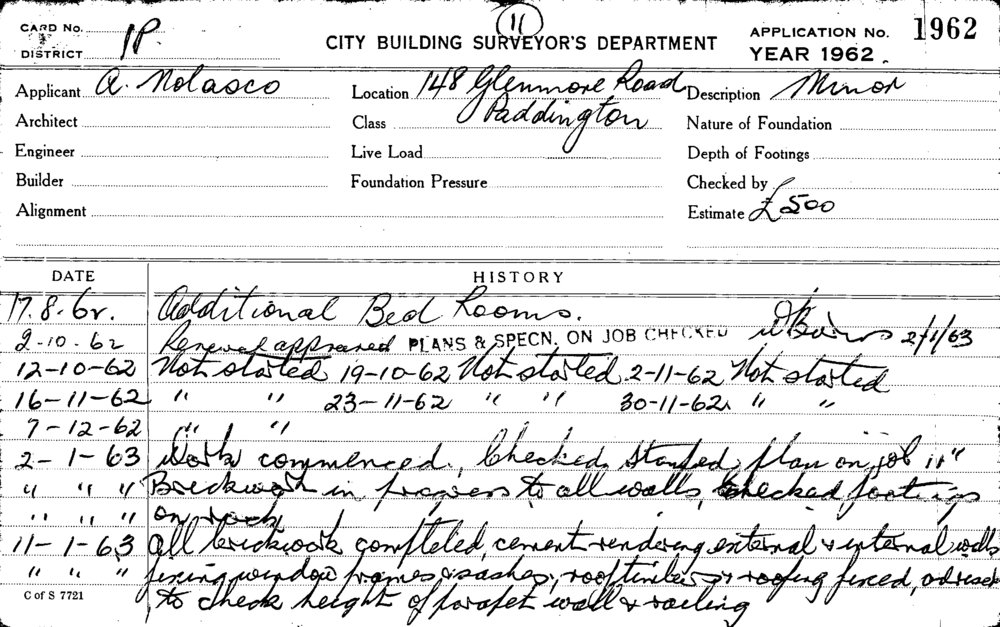 CARD No.
DISTRICT 1P.
11
CITY BUILDING SURVEYOR'S DEPARTMENT
APPLICATION No. 1962
YEAR 1962.
Applicant A. Nolasco Location 148 Glenmore Road Description Minor
Paddington
Architect Class Nature of Foundation
Engineer Live Load Depth of Footings
Builder Foundation Pressure Checked by
Alignment Estimate £500
DATE HISTORY
17.8.62. Additional Bed Rooms.
2-10-62 Renewal approved PLANS & SPECN. ON JOB CHECKED 2/1/63
12-10-62 Not started 19-10-62 Not started 2-11-62 Not started
16-11-62 " " 23-11-62 " " 30-11-62 " "
7-12-62 " "
2-1-63 Work commenced, Checked Stamped plan on job 11"
" " " Brickwork in progress to all walls, checked footings
" " " on rock
11-1-63 all brickwork completed, cement rendering external & internal walls
" " " fixing window frames & sashes, roof timbers & roofing fixed, advised
to check height of parapet wall & railing
C of S 7721